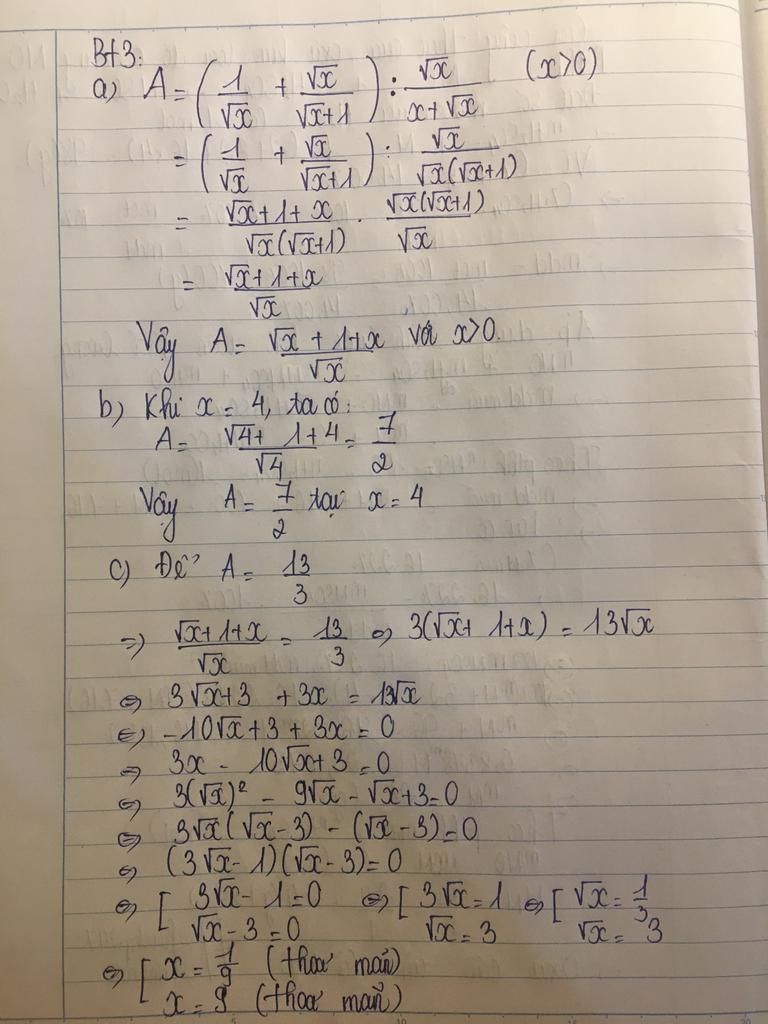 Bt3:
a) A = (1/√x + √x/(√x+1)) : √x/(x+√x) (x>0)
= (1/√x + √x/(√x+1)) : √x/(√x(√x+1))
= (√x+1+x)/(√x(√x+1)) . (√x(√x+1))/√x
= (√x+1+x)/√x
Vậy A = (√x+1+x)/√x với x>0.
b) Khi x = 4, ta có:
A = (√4+1+4)/√4 = 7/2
Vậy A = 7/2 tại x = 4
c) Để A = 13/3
=> (√x+1+x)/√x = 13/3 <=> 3(√x+1+x) = 13√x
<=> 3√x+3 +3x = 13√x
<=> -10√x+3+3x = 0
<=> 3x - 10√x+3 = 0
<=> 3(√x)² - 9√x - √x+3=0
<=> 3√x(√x-3) - (√x-3)=0
<=> (3√x-1)(√x-3)=0
<=> [ 3√x-1=0 <=> [ 3√x=1 <=> [ √x = 1/3
√x-3=0 √x=3 √x = 3
<=> [ x = 1/9 (thoả mãn)
x = 9 (thoả mãn)